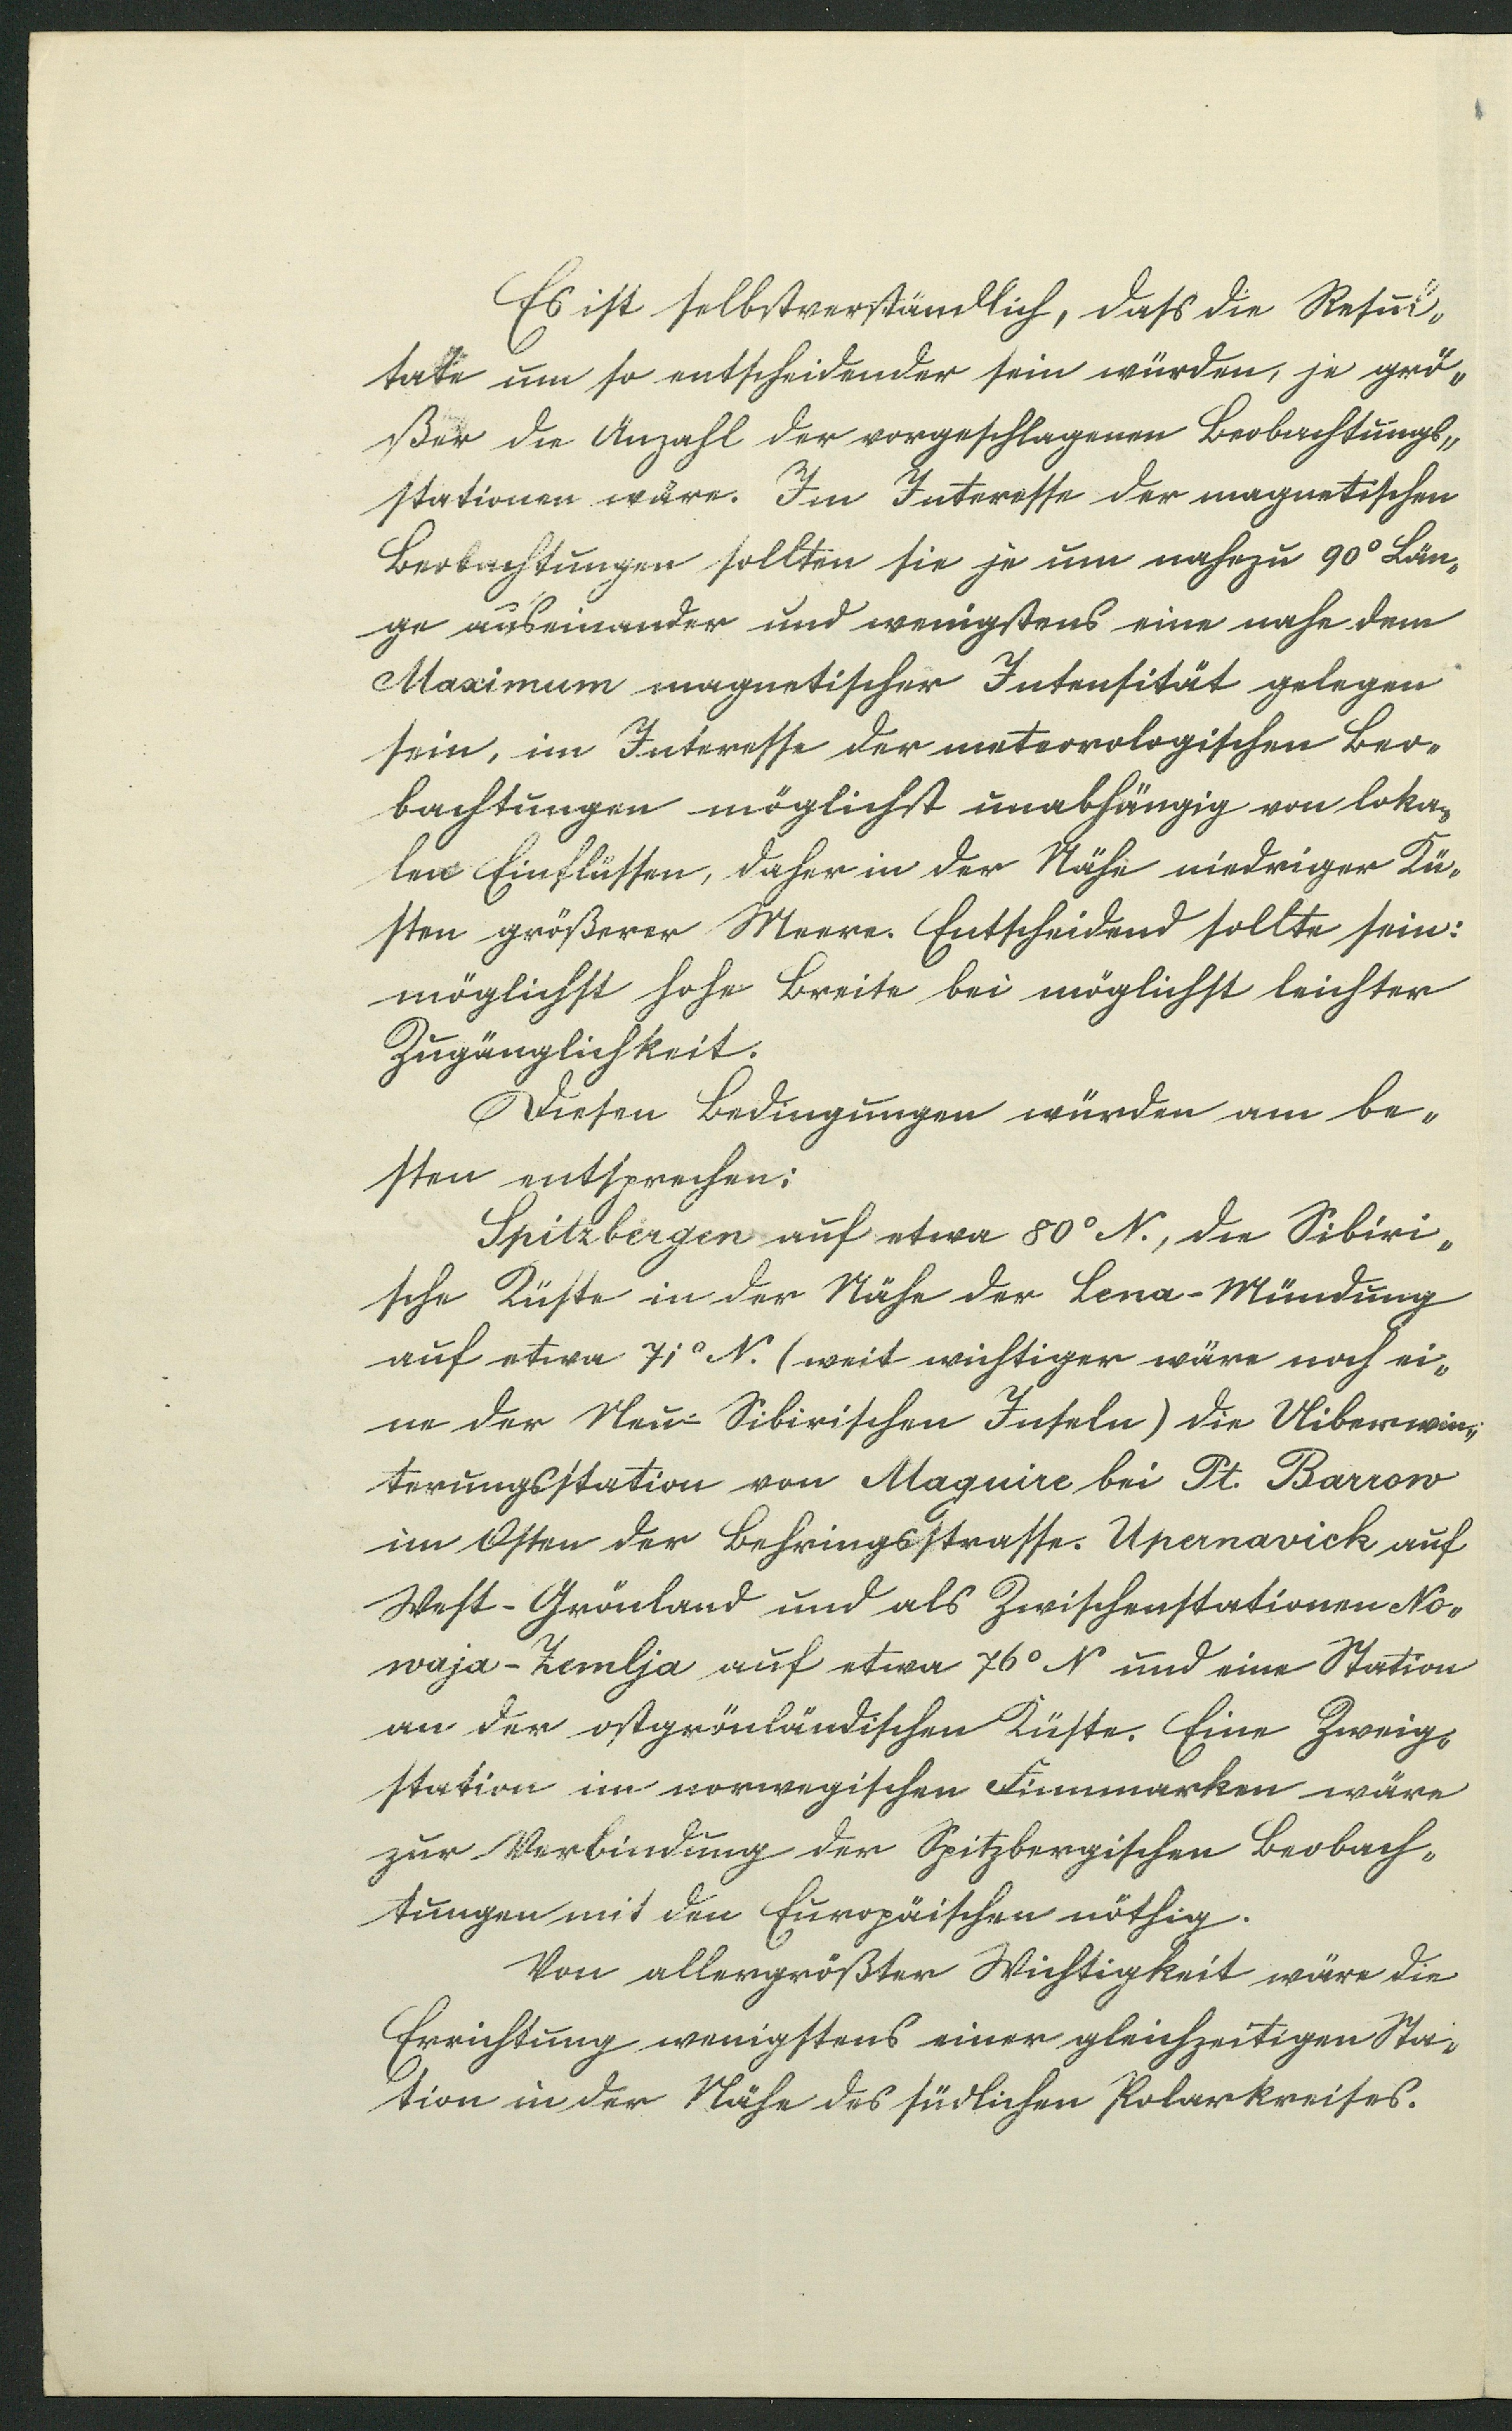 Es ist selbstverständlich, dass die Resul„
tate um so entscheidender sein würden, je grö„
ßer die Anzahl der vorgeschlagenen Beobachtungs„
stationen wäre. Im Interesse der magnetischen
Beobachtungen sollten sie je um nahezu 90° Län„
ge auseinander und wenigstens eine nahe dem
Maximum magnetischer Intensität gelegen
sein, im Interesse der meteorologischen Beo„
bachtungen möglichst unabhängig von loka„
len Einflüssen, daher in der Nähe niedriger Kü„
sten größerer Meere. Entscheidend sollte sein:
möglichst hohe Breite bei möglichst leichter
Zugänglichkeit.
Diesen Bedingungen würden am be„
sten entsprechen:
Spitzbergen auf etwa 80° N., die Sibiri„
sche Küste in der Nähe der Lena-Mündung
auf etwa 71° N. (weit wichtiger wäre noch ei„
ne der Neu-Sibirischen Inseln) die Uiberwin„
terungsstation von Maguire bei Pt. Barrow
im Osten der Behringsstrasse. Upernavick auf
West-Grönland und als Zwischenstationen No„
waja-Zemlja auf etwa 76° N und eine Station
an der ostgrönländischen Küste. Eine Zweig„
station im norwegischen Finnmarken wäre
zur Verbindung der Spitzbergischen Beobach„
tungen mit den Europäischen nöthig.
Von allergrößter Wichtigkeit wäre die
Errichtung wenigstens einer gleichzeitigen Sta„
tion in der Nähe des südlichen Polarkreises.